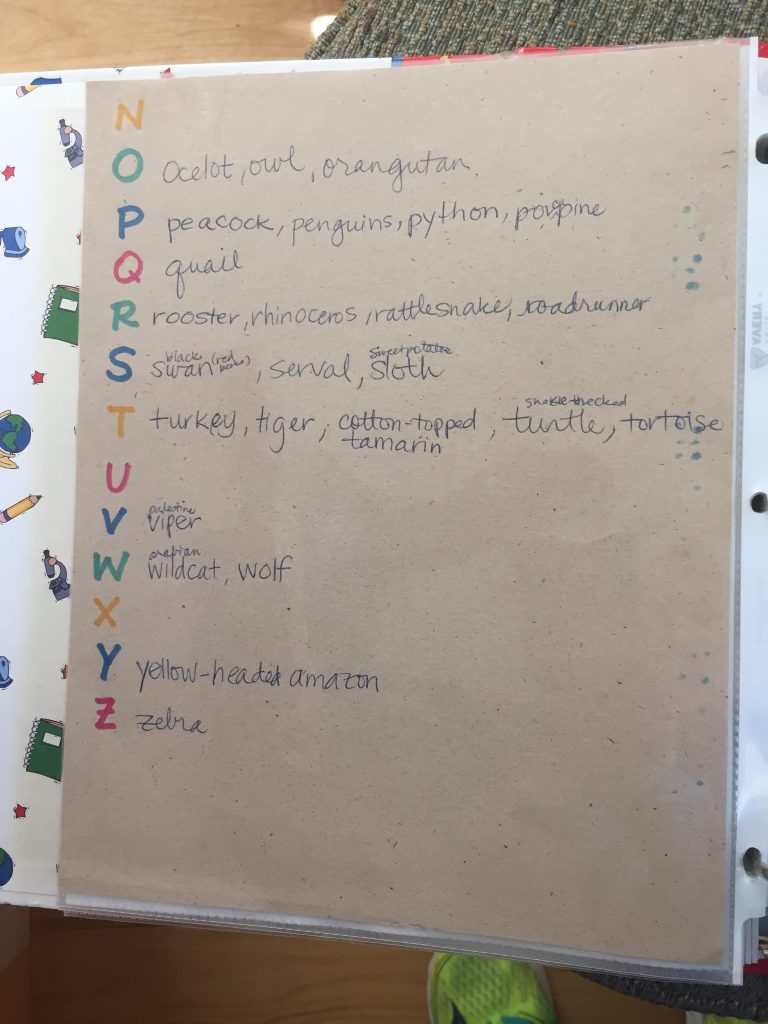 N
O ocelot, owl, orangutan
P peacock, penguins, python,
Q quail
R rooster, rhinoceros, rattlesnake, roadrunner
black (red sweet potatoe
S swan, serval, sloth
snake-necked
T turkey, tiger, cotton-topped, turtle, tortoise
tamarin
U
palestine
V viper
arabian
W wildcat, wolf
X
Y yellow-headed amazon
Z zebra
AVERY